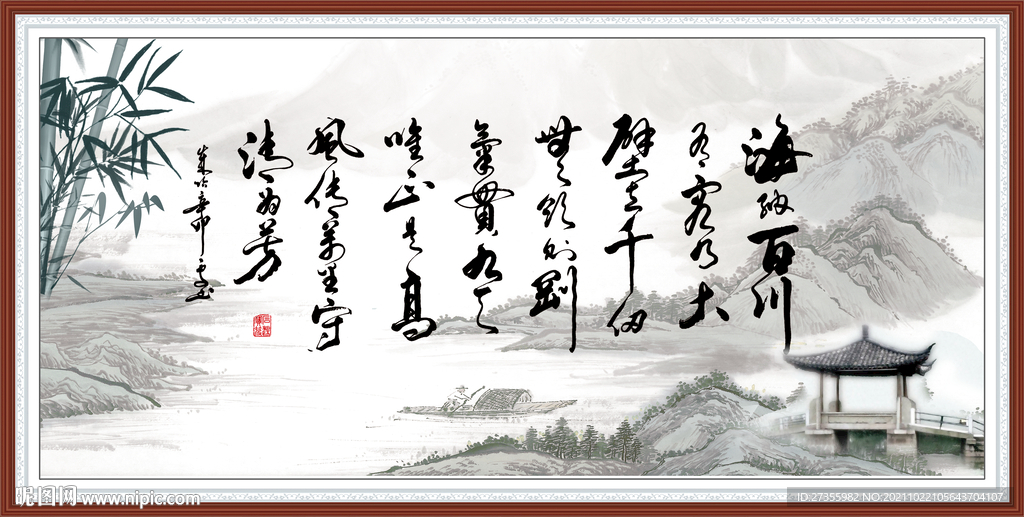 海纳百川
有容乃大
壁立千仞
無欲则剛
氣貫九天
唯正是高
風传萬里守
清为芳
昵图网 www.nipic.com
ID:27355982 NO:20211022105643704107